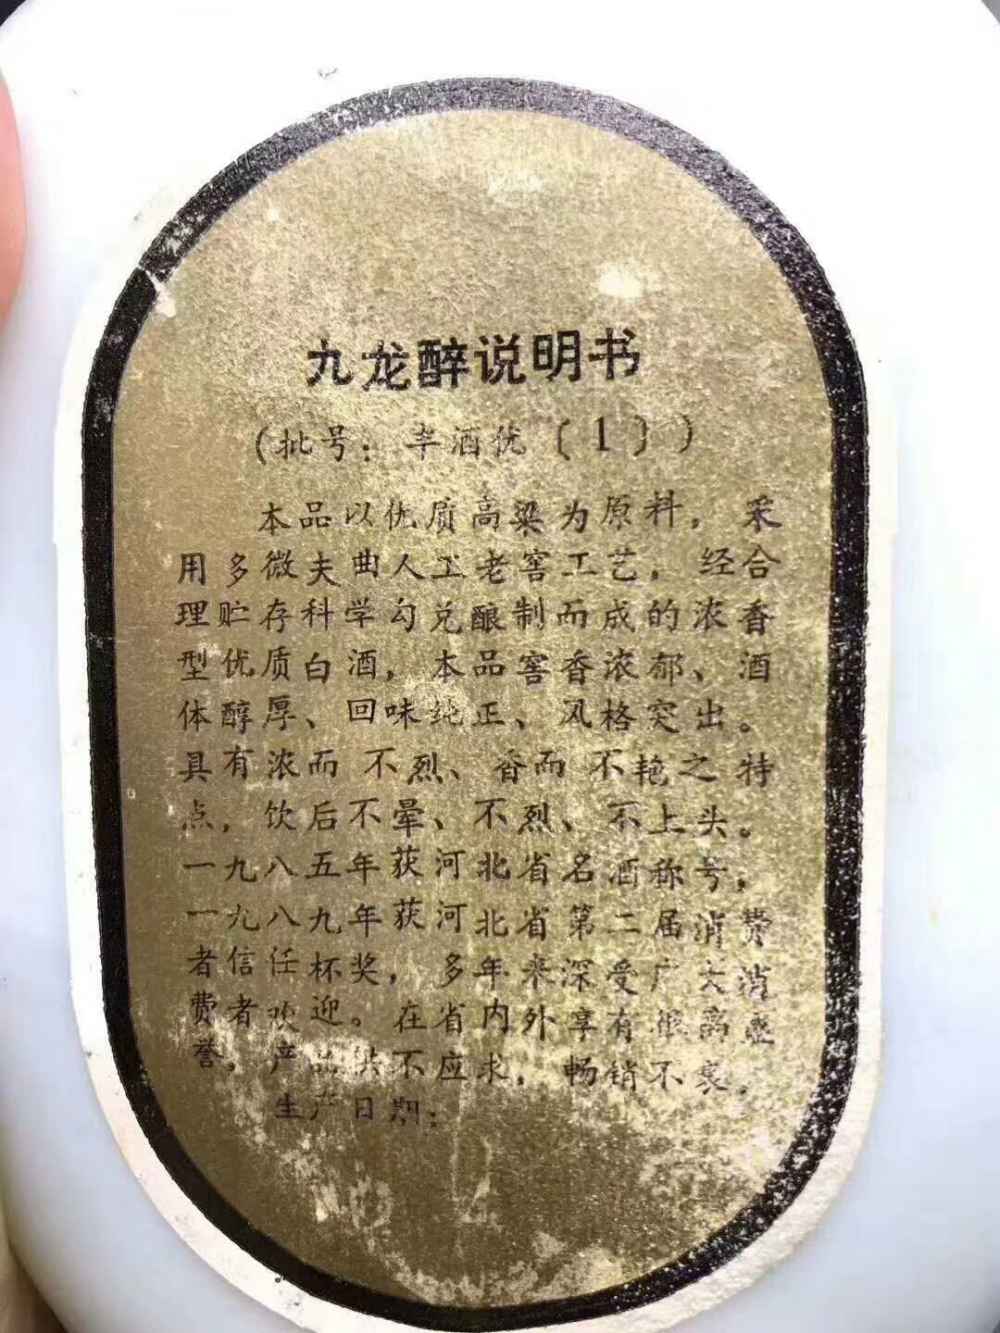 九龙醉说明书
(批号：辛酒优〔1〕)
本品以优质高粱为原料，采
用多微夫曲人工老窖工艺，经合
理贮存科学勾兑酿制而成的浓香
型优质白酒，本品窖香浓郁、酒
体醇厚、回味纯正、风格突出。
具有浓而不烈、香而不艳之特
点，饮后不晕、不烈、不上头。
一九八五年获河北省名酒称号，
一九八九年获河北省第二届消费
者信任杯奖，多年来深受广大消
费者欢迎。在省内外享有很高声
誉。产品供不应求，畅销不衰。
生产日期：